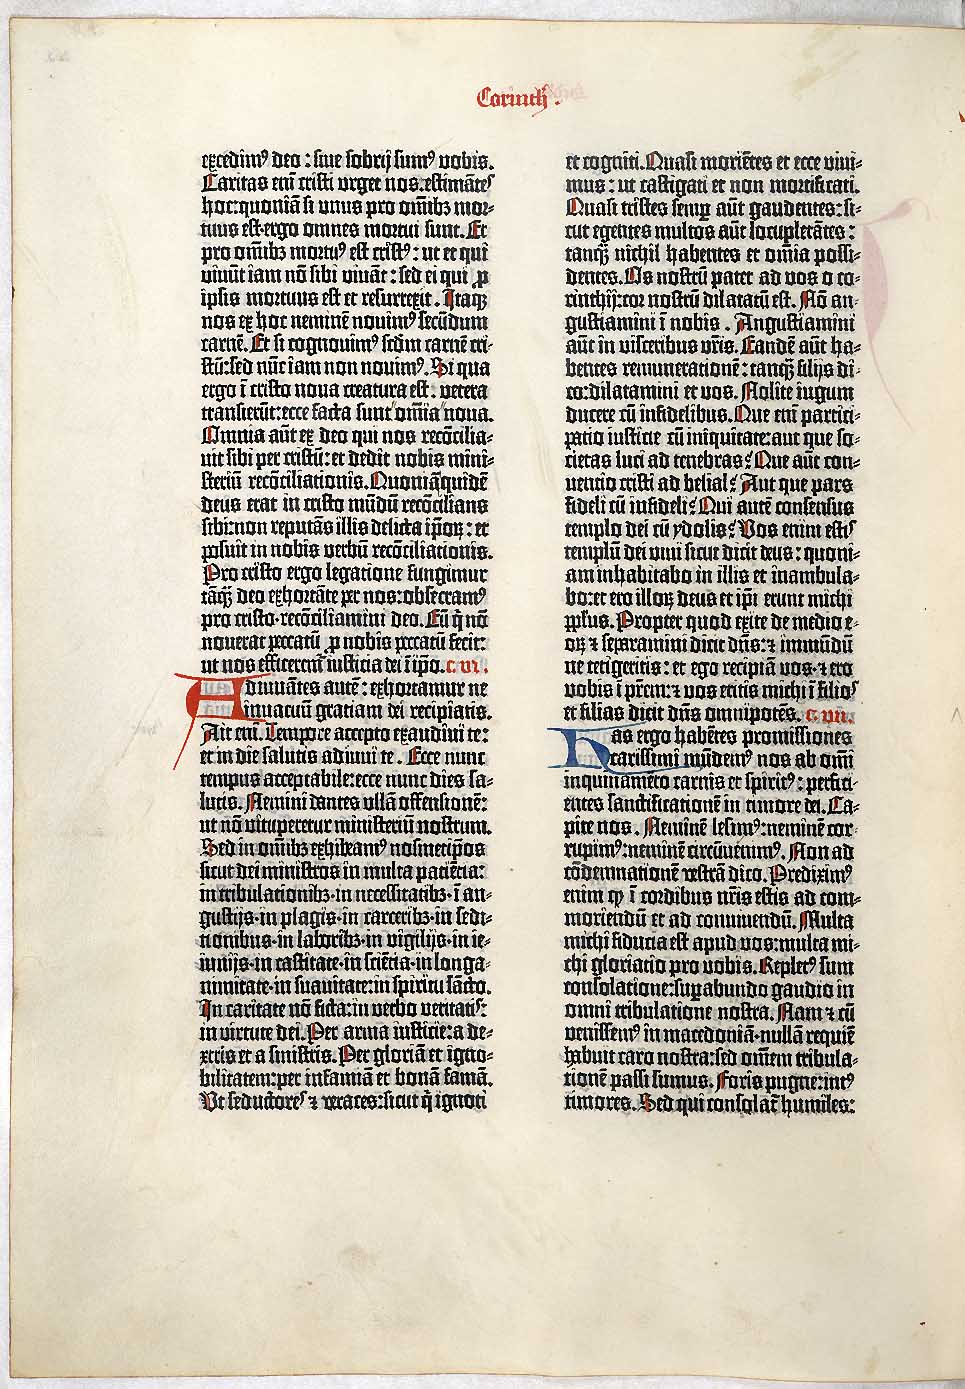 Corinth.
excedimꝰ deo : siue sobrij sumꝰ vobis.
Caritas em̄ cristi vrget nos: estimātes
hoc: quoniā si unus pro om̄ibꝫ mor⸗
tuus est· ergo omnes mortui sunt. Et
pro om̄ibꝫ mortuꝰ est cristꝰ : ut et qui
viuūt iam nō sibi viuāt : sed ei qui ꝓ
ipsis mortuus est et resurrexit. Itaqꝫ
nos ex hoc neminē nouimꝰ secūdum
carnē. Et si cognouimꝰ scd̄m carnē cri⸗
stū: sed nūc iam non nouimꝰ. Si qua
ergo ī cristo noua creatura est : vetera
transierūt: ecce facta sunt om̄ia noua.
Omnia aūt ex deo qui nos recōcilia⸗
uit sibi per cristū: et dedit nobis mini⸗
steriū recōciliationis. Quoniā quidē
deus erat in cristo mūdū recōcilians
sibi: non reputās illis delicta ip̄oꝝ : et
posuit in nobis verbū recōciliationis.
Pro cristo ergo legatione fungimur
tāqꝫ deo exhortāte per nos: obsecramꝰ
pro cristo· recōciliamini deo. Eū q̄ nō
nouerat peccatū ꝓ nobis peccatū fecit:
ut nos efficeremur iusticia dei ī ip̄o. c. vi.
Adiuuātes autē : exhortamur ne
in uacuū gratiam dei recipiatis.
Ait em̄. Tempore accepto exaudiui te:
et in die salutis adiuui te. Ecce nunc
tempus acceptabile: ecce nunc dies sa⸗
lutis. Nemini dantes ullā offensionē:
ut nō vituperetur ministeriū nostrum.
Sed in om̄ibꝫ exhibeamꝰ nosmetip̄os
sicut dei ministros in multa paciētia:
in tribulationibꝫ· in necessitatibꝫ· ī an⸗
gustijs· in plagis· in carceribꝫ· in sedi⸗
tionibus· in laboribꝫ· in vigilijs· in ie⸗
iunijs· in castitate· in sciētia· in longa⸗
nimitate· in suauitate: in spiritu sācto.
In caritate nō ficta: in verbo veritatis:
in virtute dei. Per arma iusticie: a de⸗
xtris et a sinistris. Per gloriā et igno⸗
bilitatem: per infamiā et bonā famā.
Ut seductores ⁊ veraces: sicut q̄ ignoti
et cogniti. Quasi moriētes et ecce viui⸗
mus : ut castigati et non mortificati.
Quasi tristes semp̄ aūt gaudentes: si⸗
cut egentes multos aūt locupletātes :
tanqꝫ nichil habentes et omīa possi⸗
dentes. Os nostrū patet ad vos o co⸗
rinthij: cor nostrū dilatatū est. Nō an⸗
gustiamini ī nobis. Angustiamini
aūt in visceribus vr̄is. Eandē aūt ha⸗
bentes remunerationē: tanqꝫ filijs di⸗
co: dilatamini et vos. Nolite iugum
ducere cū infidelibus. Que em̄ partici⸗
patio iusticie cū iniquitate: aut que so⸗
cietas luci ad tenebras? Que aūt con⸗
uentio cristi ad belial? Aut que pars
fideli cū infideli? Qui autē consensus
templo dei cū ydolis? Vos enim estis
templū dei viui sicut dicit deus: quoni⸗
am inhabitabo in illis et inambula⸗
bo: et ero illoꝝ deus et ip̄i erunt michi
pp̄lus. Propter quod exite de medio e⸗
oꝝ ⁊ separamini dicit dn̄s: ⁊ immūdū
ne tetigeritis: et ego recipiā vos· ⁊ ero
vobis ī pr̄em: ⁊ vos eritis michi ī filios
et filias dicit dn̄s omnipotēs. c. vii.
Has ergo habētes promissiones
carissimi mūdemꝰ nos ab omī
inquinamēto carnis et spiritꝰ : perfici⸗
entes sanctificationē in timore dei. Ca⸗
pite nos. Neminē lesimꝰ: neminē cor⸗
rupimꝰ: neminē circūuenimꝰ. Non ad
cōdemnationē vestrā dico. Prediximꝰ
enim qꝫ ī cordibus nr̄is estis ad com⸗
moriendū et ad conuiuendū. Multa
michi fiducia est apud vos: multa mi⸗
chi gloriatio pro vobis. Repletꝰ sum
consolatione: suꝑabundo gaudio in
omni tribulatione nostra. Nam ⁊ cū
venissemꝰ in macedoniā· nullā requiē
habuit caro nostra: sed om̄em tribula⸗
tionē passi sumus. Foris pugne: intꝰ
timores. Sed qui consolat̄ humiles: